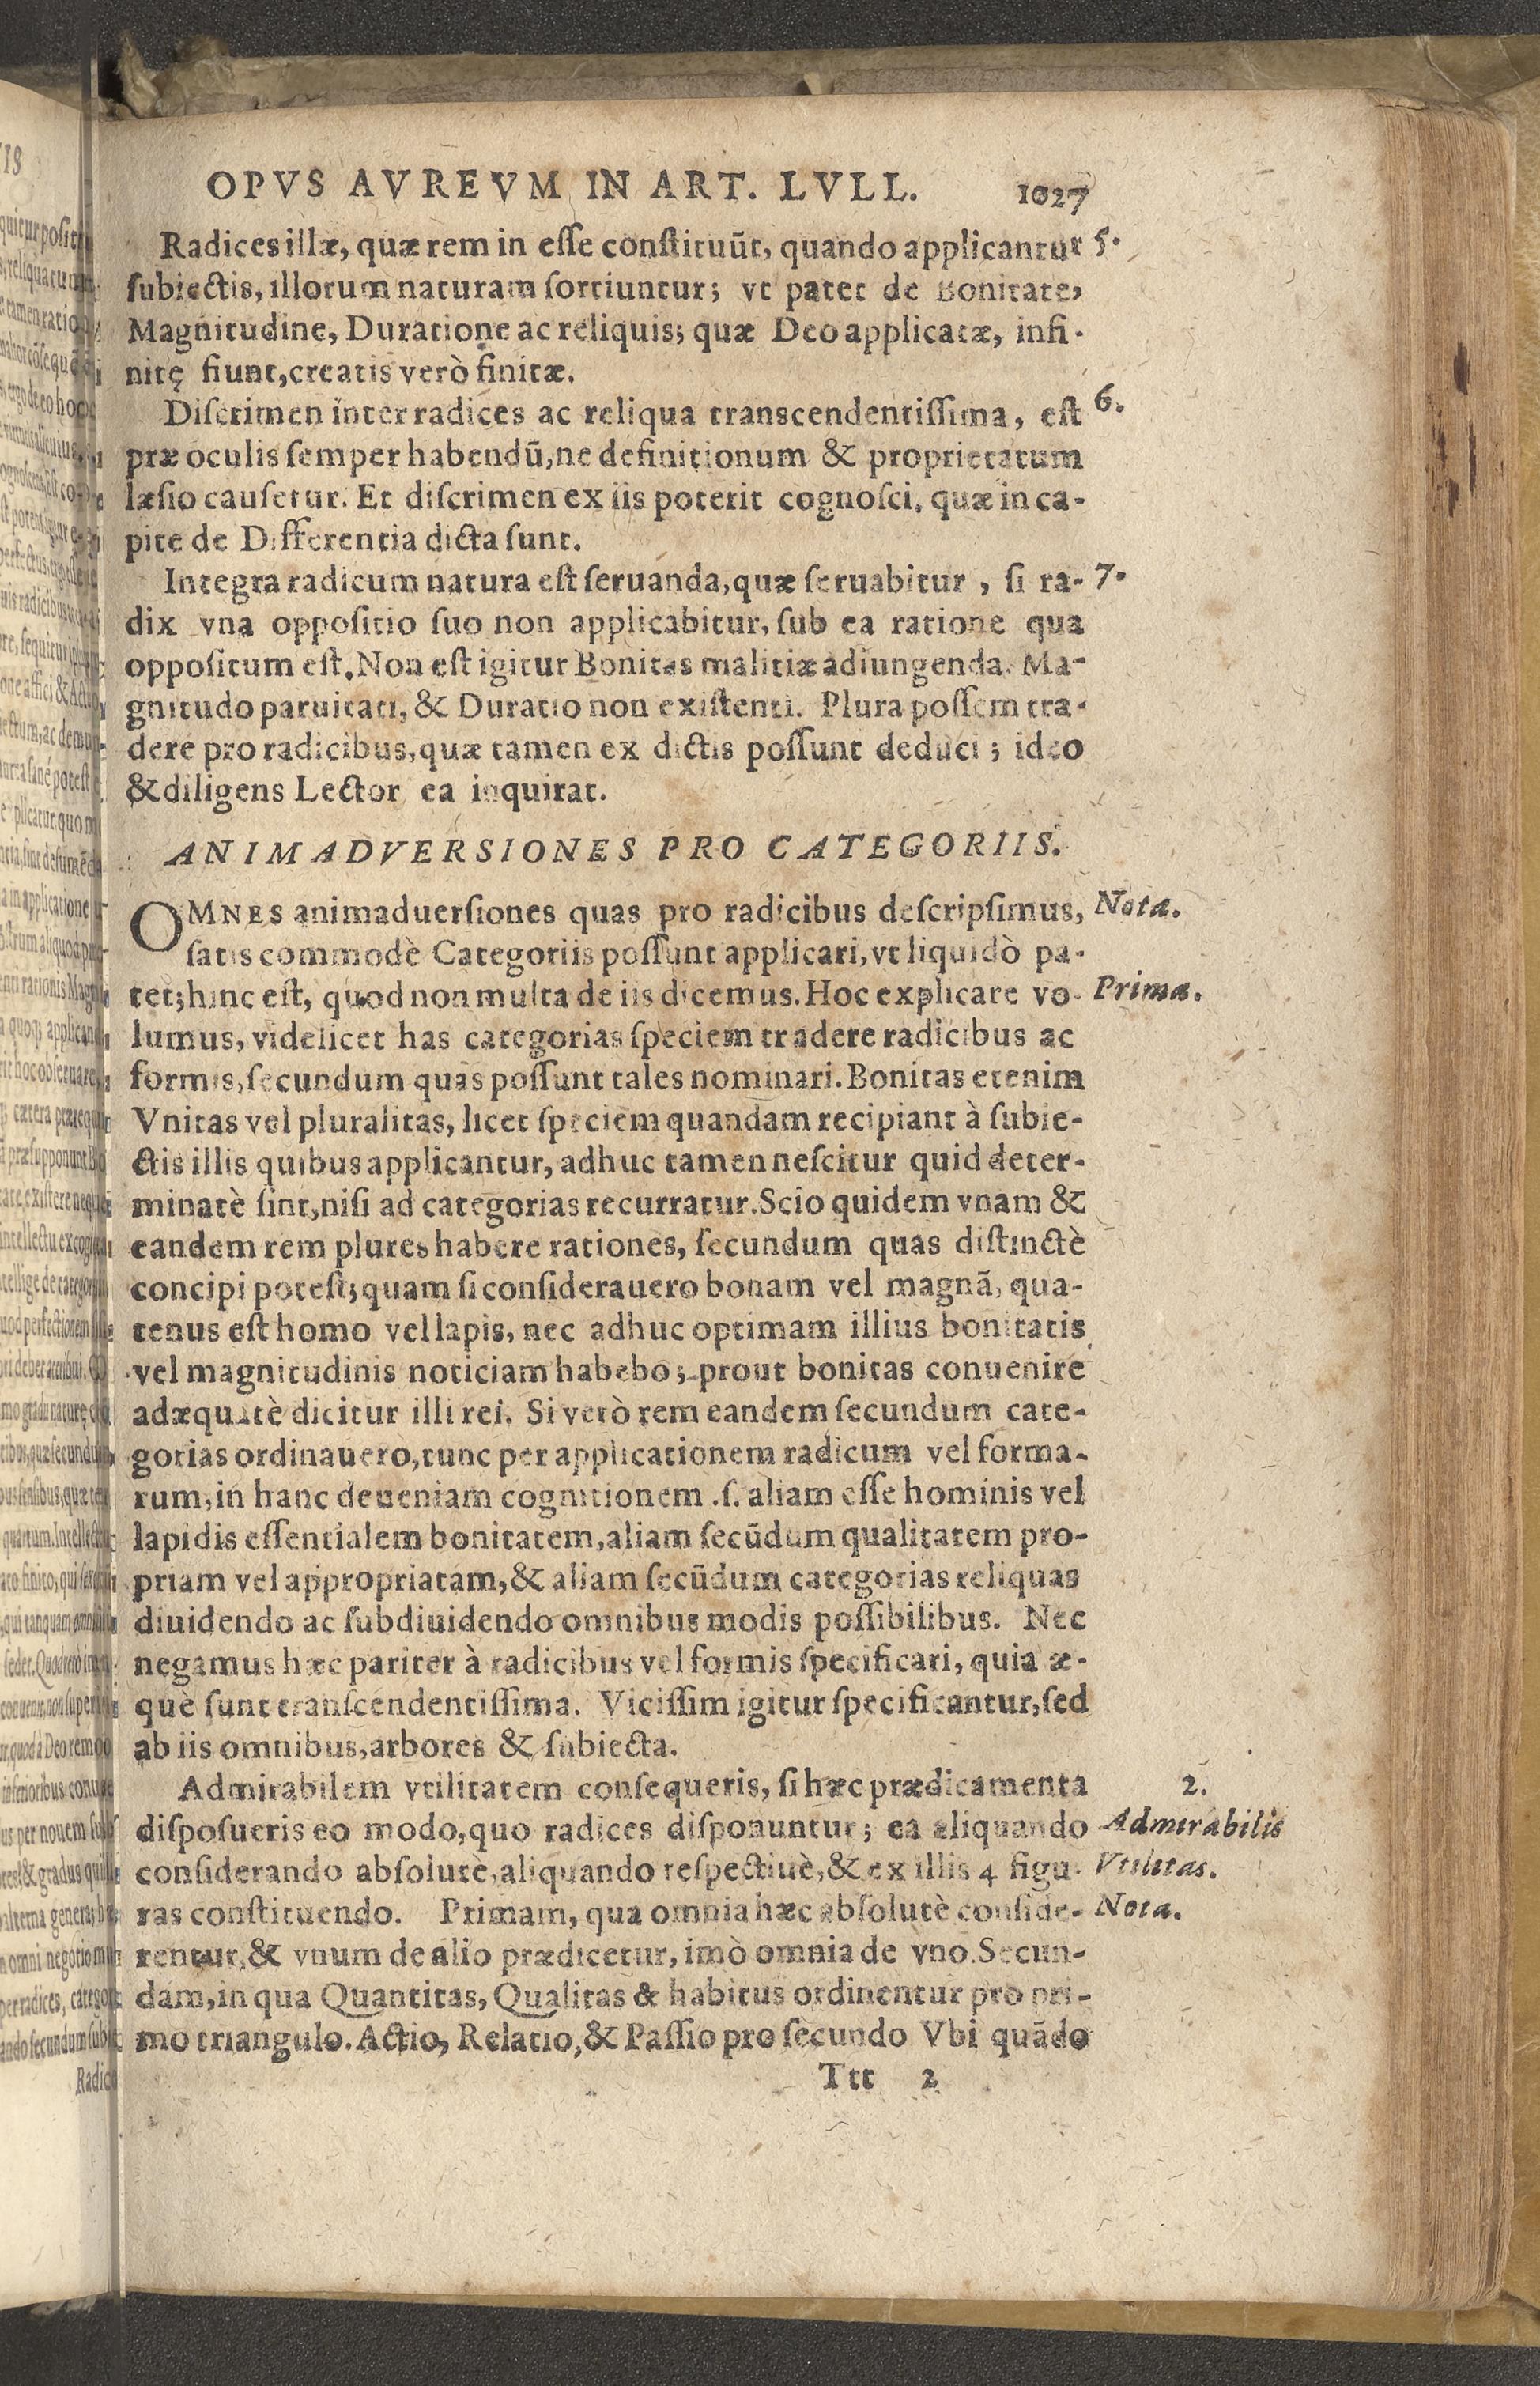 OPVS AVREVM IN ART. LVLL. 1027
Radices illæ, quæ rem in eſſe conſtituũt, quando applicantur 5.
ſubiectis, illorum naturam ſortiuntur; vt patet de Bonitate,
Magnitudine, Duratione ac reliquis; quæ Deo applicatæ, infi-
nitę fiunt, creatis verò finitæ.
Diſcrimen inter radices ac reliqua transcendentiſſima, eſt 6.
præ oculis ſemper habendũ, ne definitionum & proprietatum
læſio cauſetur. Et diſcrimen ex iis poterit cognoſci, quæ in ca-
pite de Differentia dicta ſunt.
Integra radicum natura eſt ſeruanda, quæ ſeruabitur, ſi ra- 7.
dix vna oppoſitio ſuo non applicabitur, ſub ea ratione qua
oppoſitum eſt. Non eſt igitur Bonitas malitiæ adiungenda. Ma-
gnitudo paruitati, & Duratio non exiſtenti. Plura poſſem tra-
dere pro radicibus, quæ tamen ex dictis poſſunt deduci; ideo
& diligens Lector ea inquirat.
ANIMADVERSIONES PRO CATEGORIIS.
OMNES animaduerſiones quas pro radicibus deſcripſimus, Nota.
ſatis commodè Categoriis poſſunt applicari, vt liquidò pa-
tet; hinc eſt, quod non multa de iis dicemus. Hoc explicare vo- Prima.
lumus, videlicet has categorias ſpeciem tradere radicibus ac
formis, ſecundum quas poſſunt tales nominari. Bonitas etenim
Vnitas vel pluralitas, licet ſpeciem quandam recipiant à ſubie-
ctis illis quibus applicantur, adhuc tamen neſcitur quid deter-
minatè ſint, niſi ad categorias recurratur. Scio quidem vnam &
eandem rem plures habere rationes, ſecundum quas diſtinctè
concipi poteſt; quam ſi conſiderauero bonam vel magnã, qua-
tenus eſt homo vel lapis, nec adhuc optimam illius bonitatis
vel magnitudinis noticiam habebo; prout bonitas conuenire
adæquatè dicitur illi rei. Si verò rem eandem ſecundum cate-
gorias ordinauero, tunc per applicationem radicum vel forma-
rum, in hanc deueniam cognitionem .ſ. aliam eſſe hominis vel
lapidis eſſentialem bonitatem, aliam ſecũdum qualitatem pro-
priam vel appropriatam, & aliam ſecũdum categorias reliquas
diuidendo ac ſubdiuidendo omnibus modis poſſibilibus. Nec
negamus hæc pariter à radicibus vel formis ſpecificari, quia æ-
què ſunt tranſcendentiſſima. Viciſſim igitur ſpecificantur, ſed
ab iis omnibus, arbores & ſubiecta.
Admirabilem vtilitatem conſequeris, ſi hæc prædicamenta 2.
diſpoſueris eo modo, quo radices diſponuntur; ea aliquando Admirabilis
conſiderando abſolutè, aliquando reſpectiuè, & ex illis 4 figu- Vtilitas.
ras conſtituendo. Primam, qua omnia hæc abſolutè conſide- Nota.
rentur, & vnum de alio prædicetur, imò omnia de vno. Secun-
dam, in qua Quantitas, Qualitas & habitus ordinentur pro pri-
mo triangulo. Actio, Relatio, & Paſſio pro ſecundo Vbi quãdo
Ttt 2